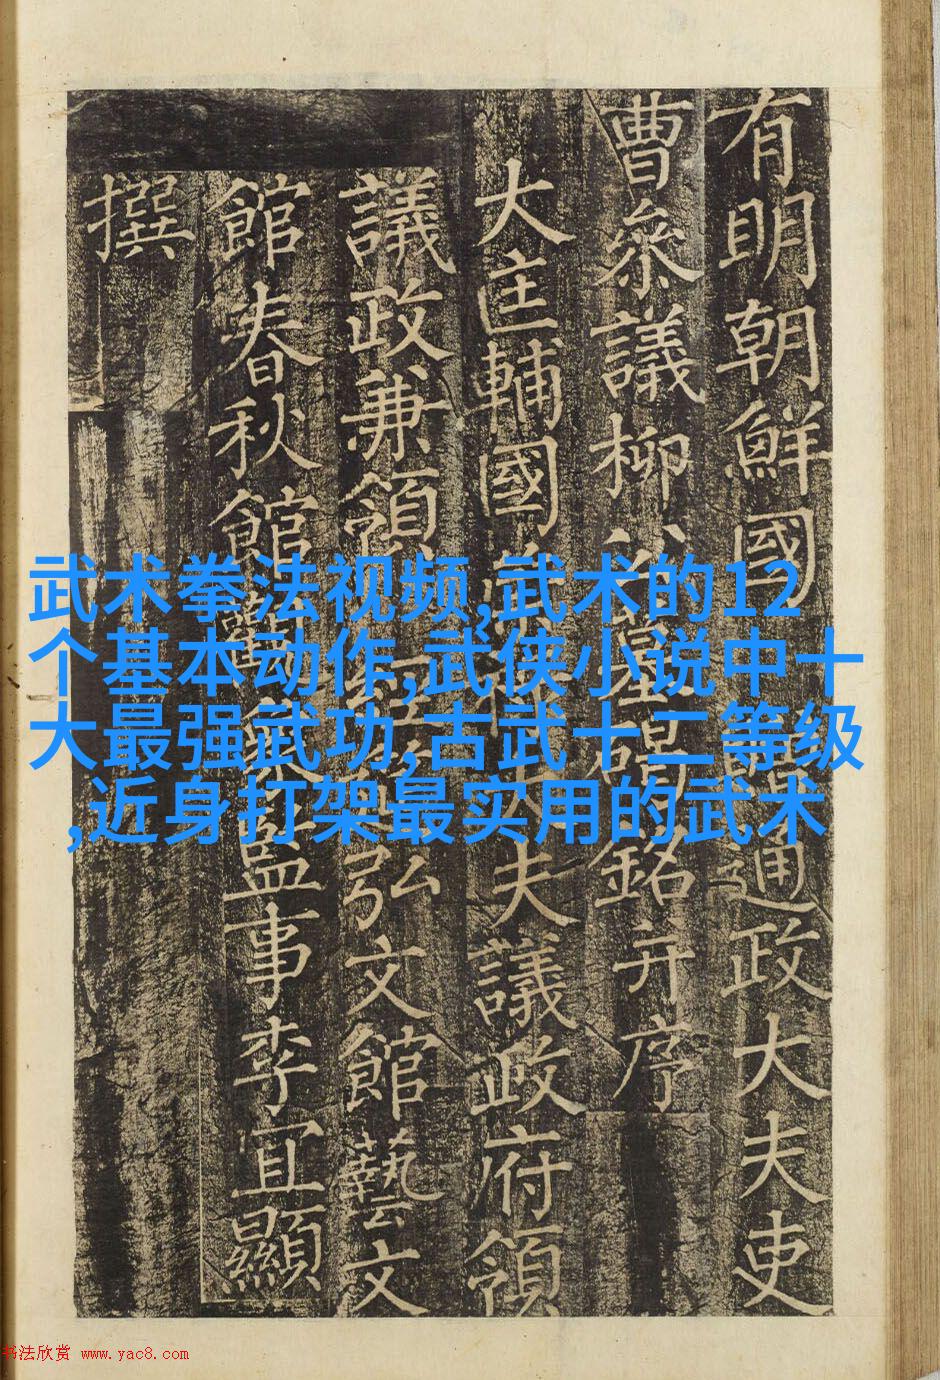 有明朝鮮國通政大夫吏
曹參議柳公墓碣銘并序
大匡輔國崇祿大夫議政府領
議政兼領經筵弘文館藝文
館春秋館觀象監事李宜顯
撰
武术拳法视频,武术的12
个基本动作,武侠小说中十
大最强武功,古武十二等级
,近身打架最实用的武术
书法欣赏 www.yac8.com